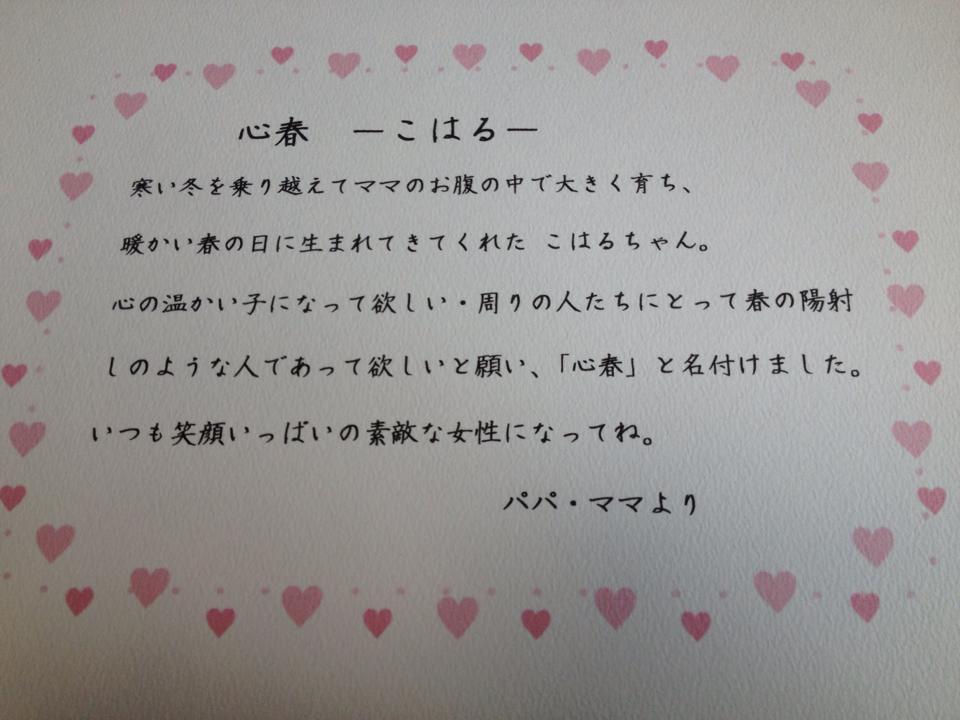 心春　－こはる－
寒い冬を乗り越えてママのお腹の中で大きく育ち、
暖かい春の日に生まれてきてくれた こはるちゃん。
心の温かい子になって欲しい・周りの人たちにとって春の陽射
しのような人であって欲しいと願い、「心春」と名付けました。
いつも笑顔いっぱいの素敵な女性になってね。
パパ・ママより